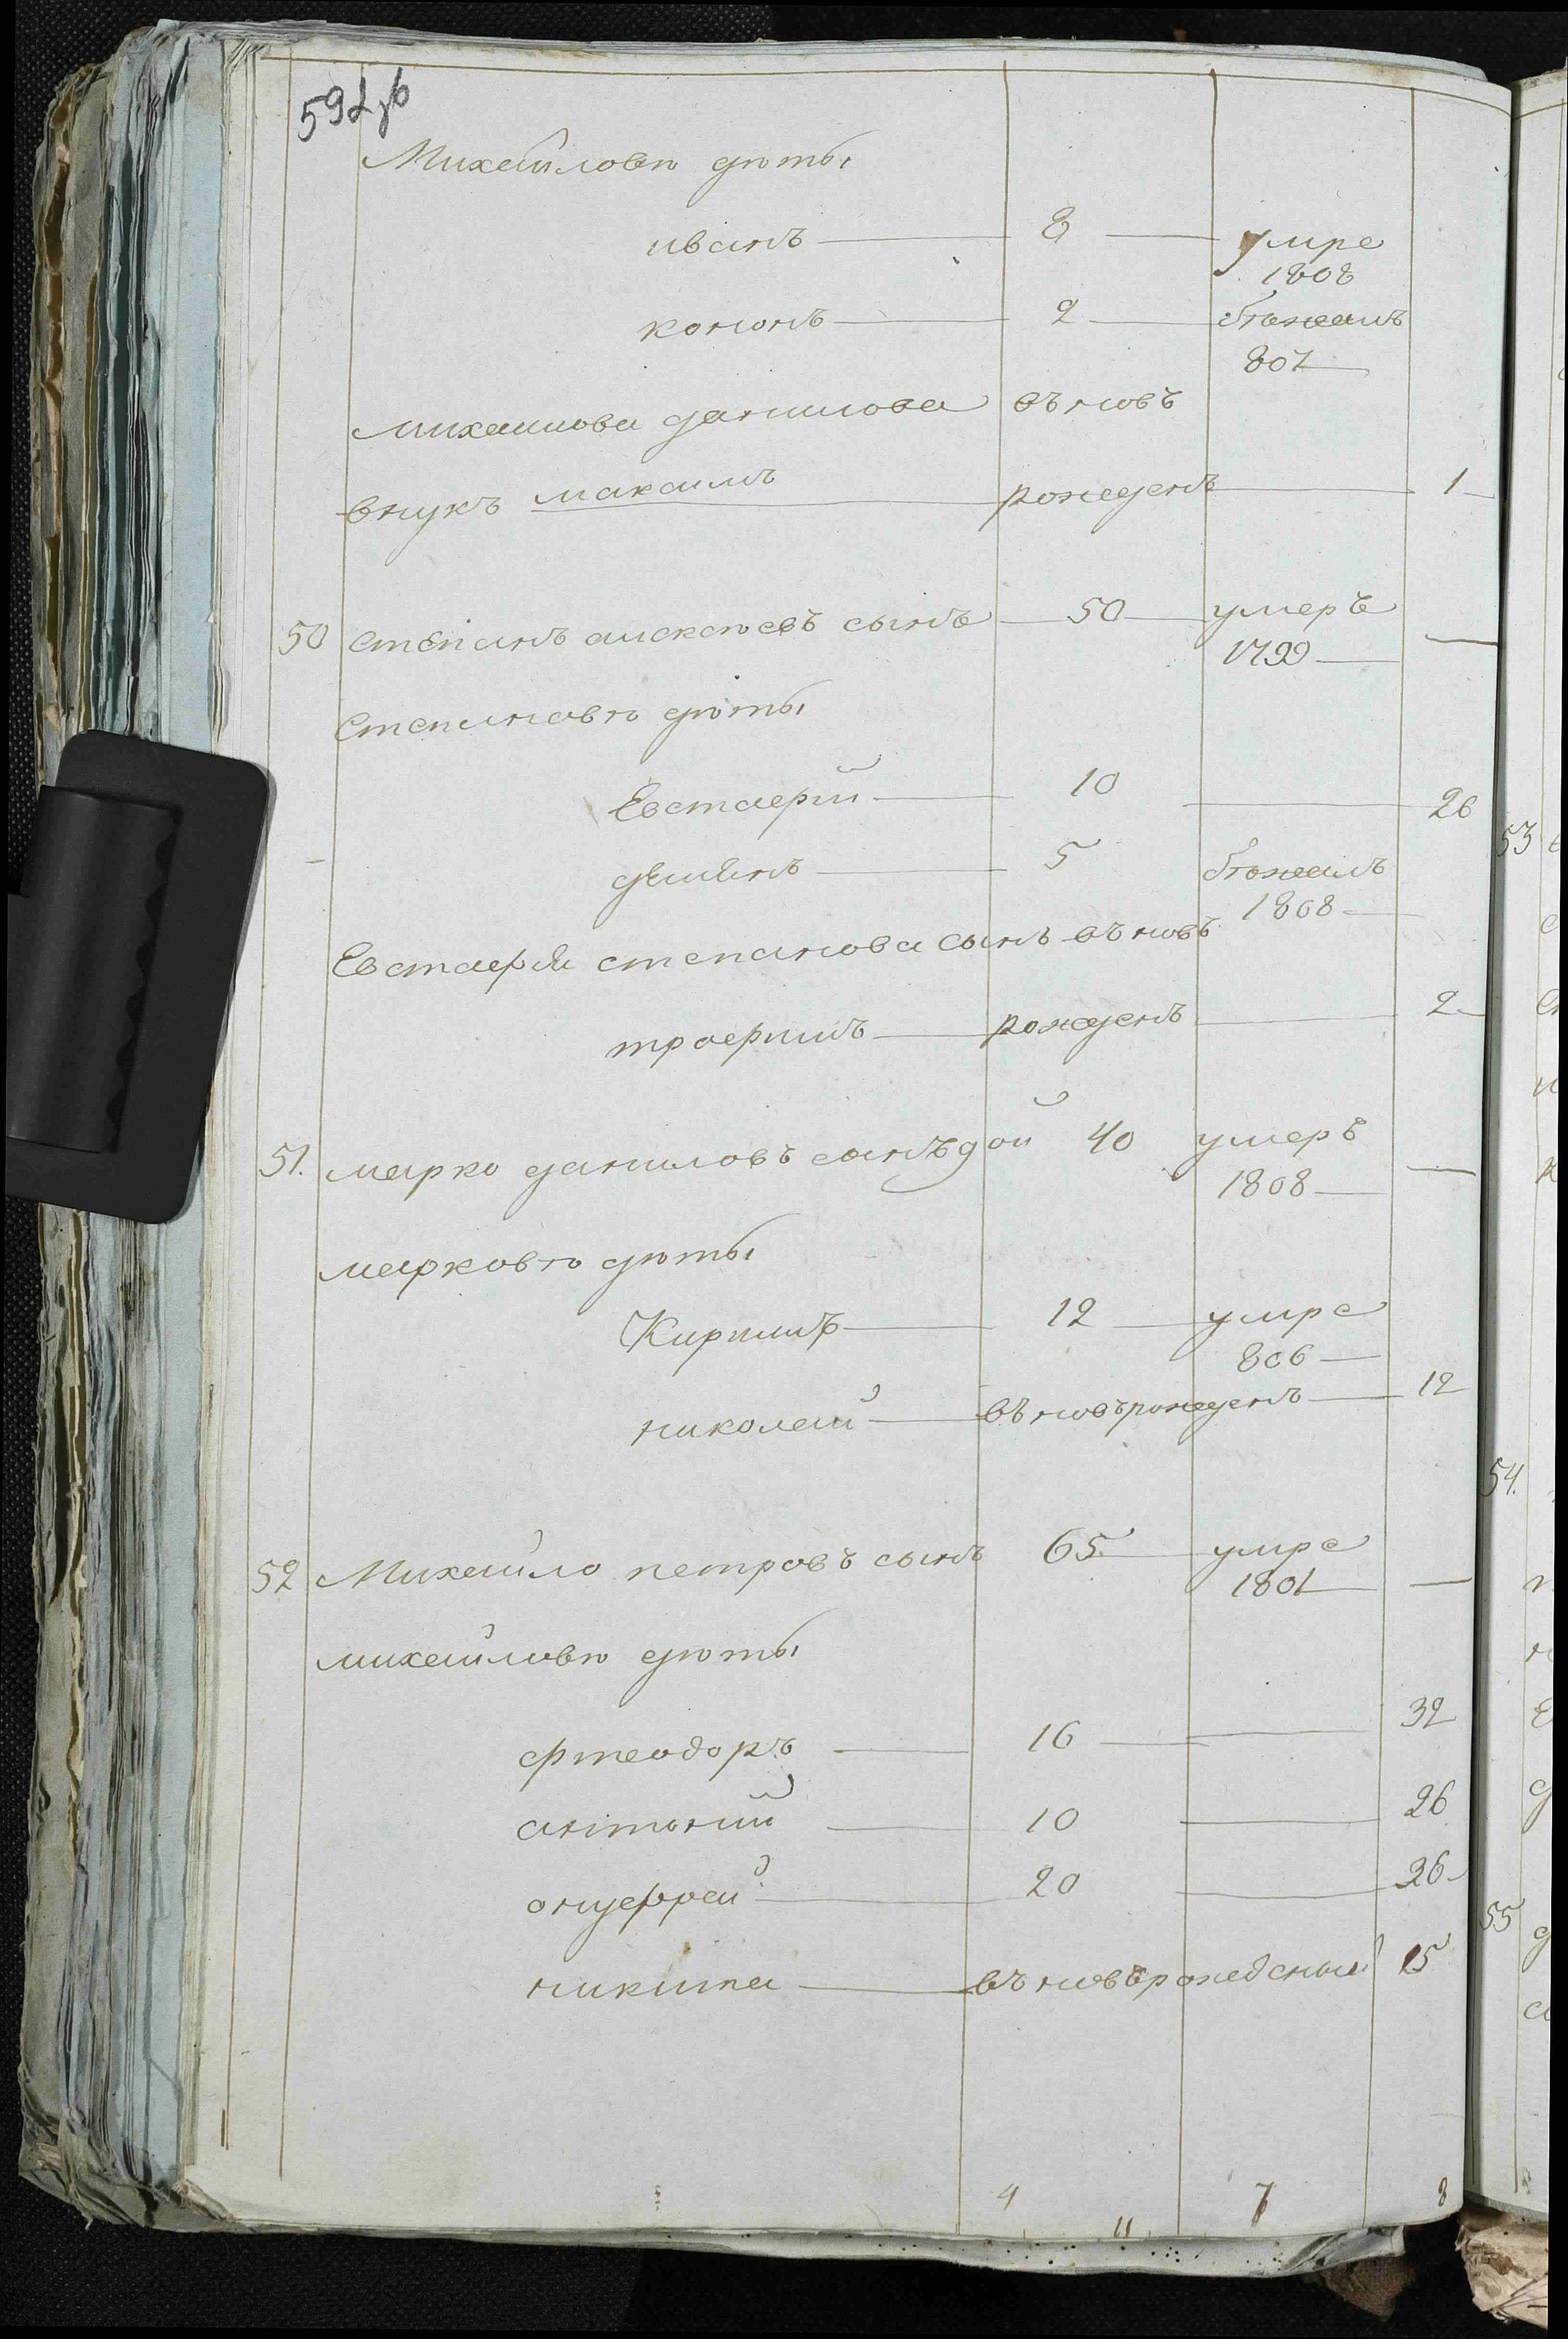 592 зв
Михайловѣ дѣты
иванъ 8 умре
1808
кононъ 2 бѣжалъ
801
михаилова данилова въновъ
внукъ максимъ рожденъ 1
50 степанъ алексѣевъ сынъ 50 умеръ
1799
Степановѣ дѣты
Евстафій 10 26
демѣнъ 5 бѣжалъ
1808
Евстафія степанова сынъ въновъ
трофимъ рожденъ 2
51. марко даниловъ сынъ 40 умеръ
1808
марковѣ дѣты
Кирилъ 12 умре
806
николай въновърожденъ 12
52 Михайло петровъ сынъ 65 умре
1801
михайловѣ дѣты
фтеодоръ 16 32
антоний 10 26
онуфрей 20 36
никита въновърожденый 15
4 7 8
11
53
54.
55